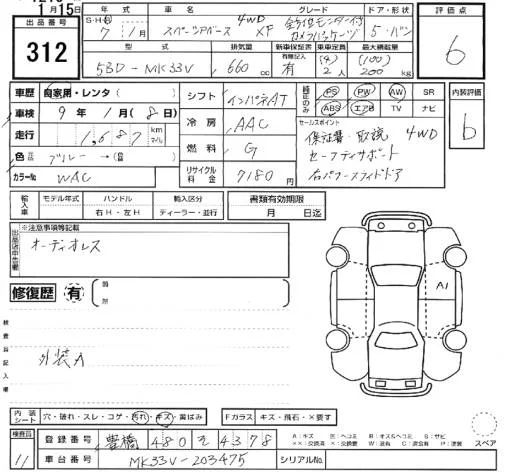 1月15日
出品番号 312
年式 車名 グレード ドア・形状 評価点
S・H・R 7 / 1月 スペーシアベース 4WD XF 全方位モニター付カメラパッケージ 5・バン 6
型式 排気量 新車保証書 乗車定員 最大積載量
有無記入 (4) (100)
5BD-MK33V 660 cc 有 2人 200 kg
車歴 自家用・レンタ( ) シフト インパネAT PS PW AW SR 内装評価
車検 9年 1月(8日) ABS エアB TV ナビ b
走行 1,687 km マイル 冷房 AAC セールスポイント
保証書・取説 4WD
色 ブルー→( ) 燃料 G セーフティサポート
カラーNo WAC リサイクル料金 7180円 右パワースライドドア
輸入車 モデル年式 ハンドル 輸入区分 書類有効期限
右H・左H ディーラー・並行 月 日迄
※注意事項等記載
オーディオレス
修復歴 有
A1
検査員記入欄
外装A
内装シート 穴・破れ・スレ・コゲ・汚れ・キズ・黄ばみ Fガラス キズ・飛石・×要す
検査員 11 登録番号 豊橋 480 そ 4378
車台番号 MK33V-203475 シリアルNo.
スペア